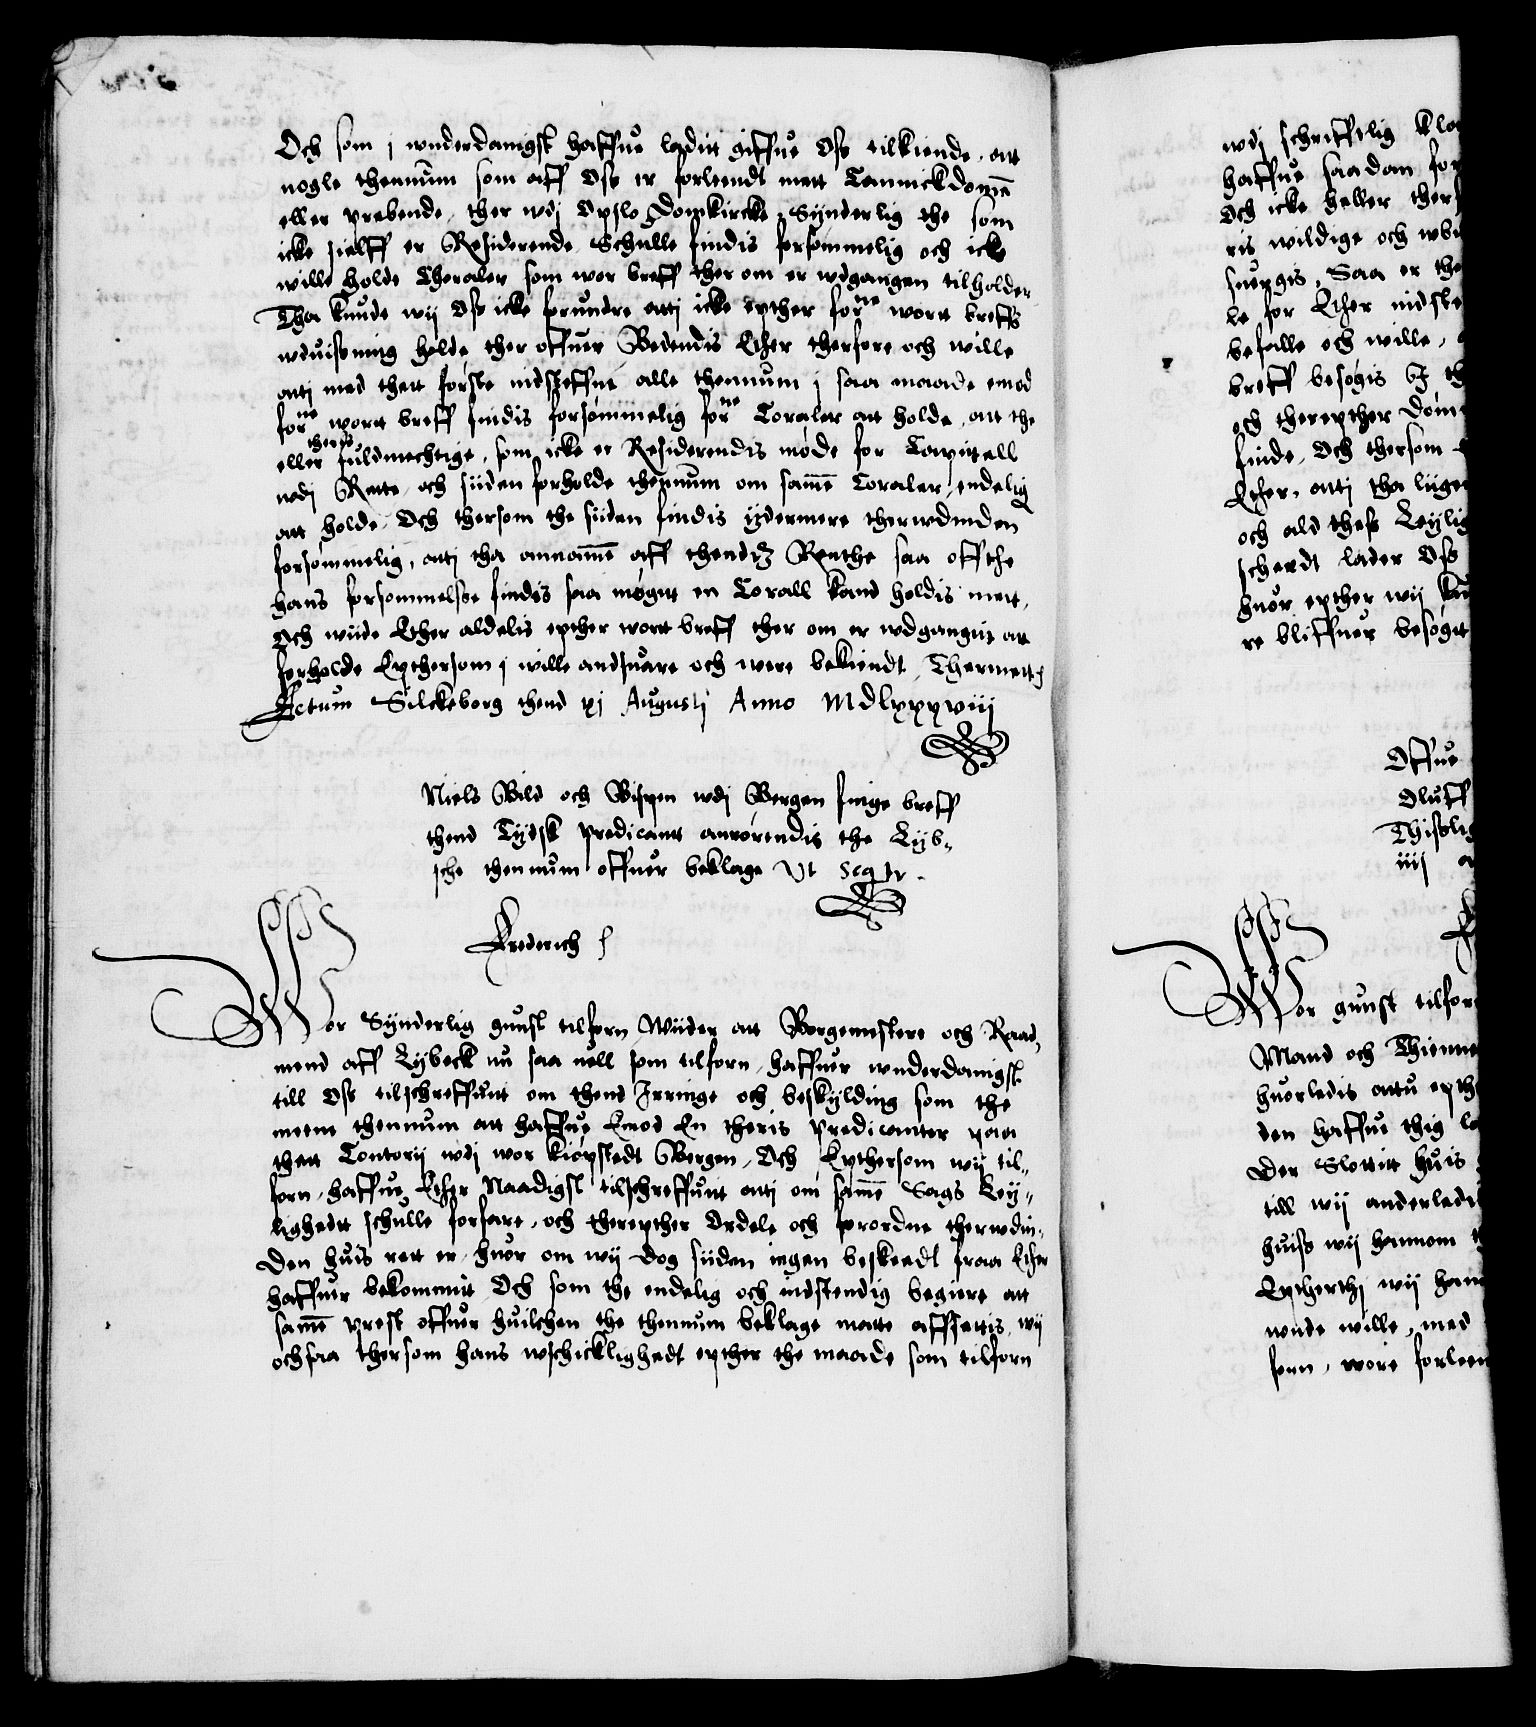 Och som j wnderdanigst haffue ladit giffue Oss tilkiende, att
nogle thennum som aff Oss er forleendt mett Cannickdomē
eller prebende, ther wdj Opslo Domkircke, Synderlig the som
icke sielff er Residerende Schulle findis forsømmelig och icke
wille holde Choraler som wor breff ther om er wdgangen tilholder
Tha kunde wij Oss icke forundre atti icke epther forne wortt breffs
wduissning holde ther offuer Bedendis Ether therfore och wille
atj med thett første indsteffne alle thennum j saa maade emod
forne wortt breff findis forsømmelig forne Coraler att holde, att the
eller theris fuldmechtige, som icke er Residerendis møde for Capittell
wdj Rette, och siiden forholde thennum om samē Coraler, endelig
att holde, Och thersom the siiden findis ydermere therwdinden
forsømmelig, atj tha annamē aff thendtz Renthe saa offthe
hans forsømmelse findis saa møgitt en Corall kand holdis mett,
Och wiide Ether aldelis epther wortt breff ther om er wdgangit att
forholde Epthersom j wille andsuare och were bekiendt, Thermett
Actum Silckeborg thend xj Augusti Anno Mdlxxxviij
Niels Bild och Bispen wdj Bergen finge breff
thend Tydsk predicant anrørendis the Lyb-
sche thennum offuer beklage Vt seqtr.
Frederich
Wor Synderlig gunst tilforn, Wiider att Borgemestere och Raad-
mend aff Lybeck nu saa uell som tilforn, haffuer wnderdanigst
till Oss tilschreffuit om thend Irringe och beskylding som the
meene thennum att haffue Emod En theris predicanter paa
thett Contorij wdj wor kiøpstedt Bergen, Och Epthersom wij til-
forn, haffue Ether Naadigst tilschreffuit atj om samē Sags Ley-
lighedt schulle forfare, och therepther Ordele och forordne therwdin-
den huis rett er, huor om wij dog siiden ingen beskeedt fraa Ether
haffuer bekommit Och som the endelig och indstendig begiere att
samē prest offuer huilchen the thennum beklage motte affsettis, wij
ochsaa thersom hans wschicklighedt epther the maade som tilforn
wdj schrifftlig kla
haffue saadan for
Och icke heller ther
ris wildige och wbi
suergis, Saa er the
le for Ether indste
befalle och wille,
breff besøgis
och therepther Døm
finde, Och thersom
Ether, atj tha liige
och ald thess Leylig
scheedt lader Oss
huor epther wij
re bliffuer besøgit
Offue
Oluff
Thisslig
iiij
Wor gunst tilfor
Mand och Thienne
huorledis attu epth
den haffue thig
Der Slottitt huis
till wij anderledi
huiss wij hannom
Eptherthj wij han
wnde wille, med
fenn, wore forleen